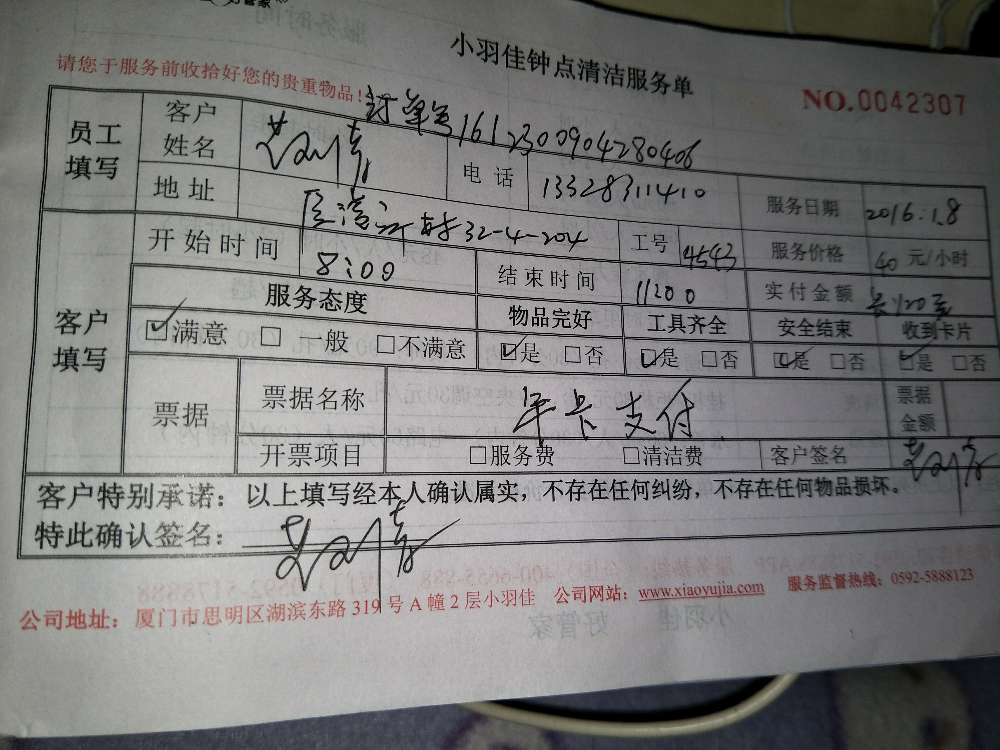 小羽佳钟点清洁服务单
请您于服务前收拾好您的贵重物品!
NO.0042307
订单号1612300904280406
员工填写 客户姓名 电话 13328311410 服务日期 2016.1.8
地址 32-4-204 工号 4543 服务价格 40 元/小时
客户填写 开始时间 8:00 结束时间 1200 实付金额
服务态度 物品完好 工具齐全 安全结束 收到卡片
☑满意 □一般 □不满意 ☑是 □否 ☑是 □否 ☑是 □否 ☑是 □否
票据 票据名称 年卡支付 票据金额
开票项目 □服务费 □清洁费 客户签名
客户特别承诺：以上填写经本人确认属实，不存在任何纠纷，不存在任何物品损坏。
特此确认签名：
公司地址：厦门市思明区湖滨东路319号A幢2层小羽佳 公司网站：www.xiaoyujia.com 服务监督热线：0592-5888123